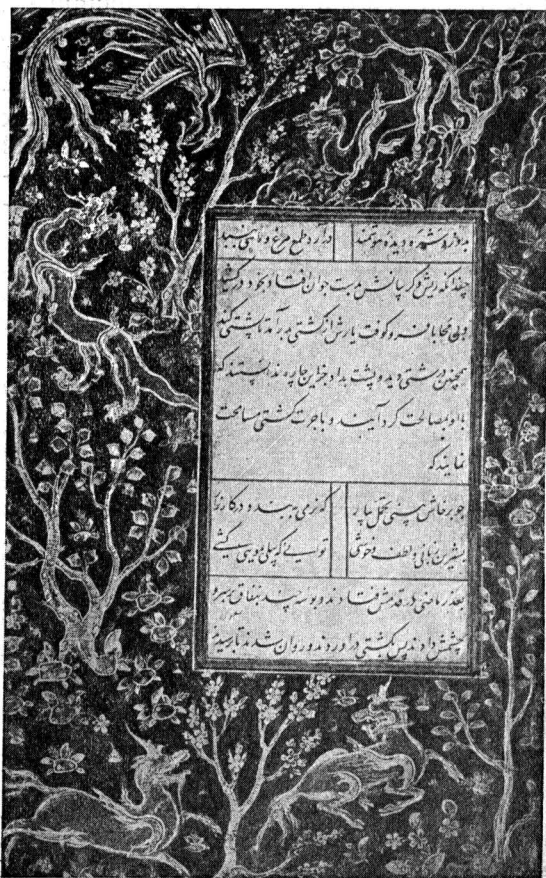 بدوزد شره دیده هوشمند درآرد طمع مرغ و ماهی ببند
چندانکه ریش و گریبانش بدست جوان افتاد بخود درکشید
و بی محابا فرو کوفت یارش از کشتی بدر آمد تا پشتی کند
همچنین درشتی دید و پشت بداد جز این چاره ندانستند که
با او بمصالحت گرد آیند و باجرت کشتی مسامحت
نمایند که
چو پرخاش بینی تحمل بیار که نرمی ببندد در کارزار
بشیرین زبانی و لطف و خوشی توانی که پیلی بمویی کشی
بعذر ماضی در قدمش فتادند و بوسه چند بنفاق بر سر و
چشمش دادند پس بکشتی در آوردند و روان شدند تا